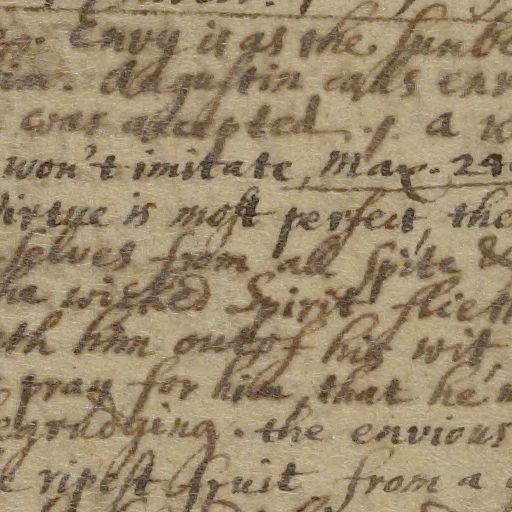 Envy is as the sunbe
Augustin calls env
was accepted. a
won't imitate, Max. 24
Virtue is most perfect, the
selves from all spite &
he wicked Spirit flieth
eth him out of his wit,
pray for him, that he'
egrudging. the envious
ripest fruit from a